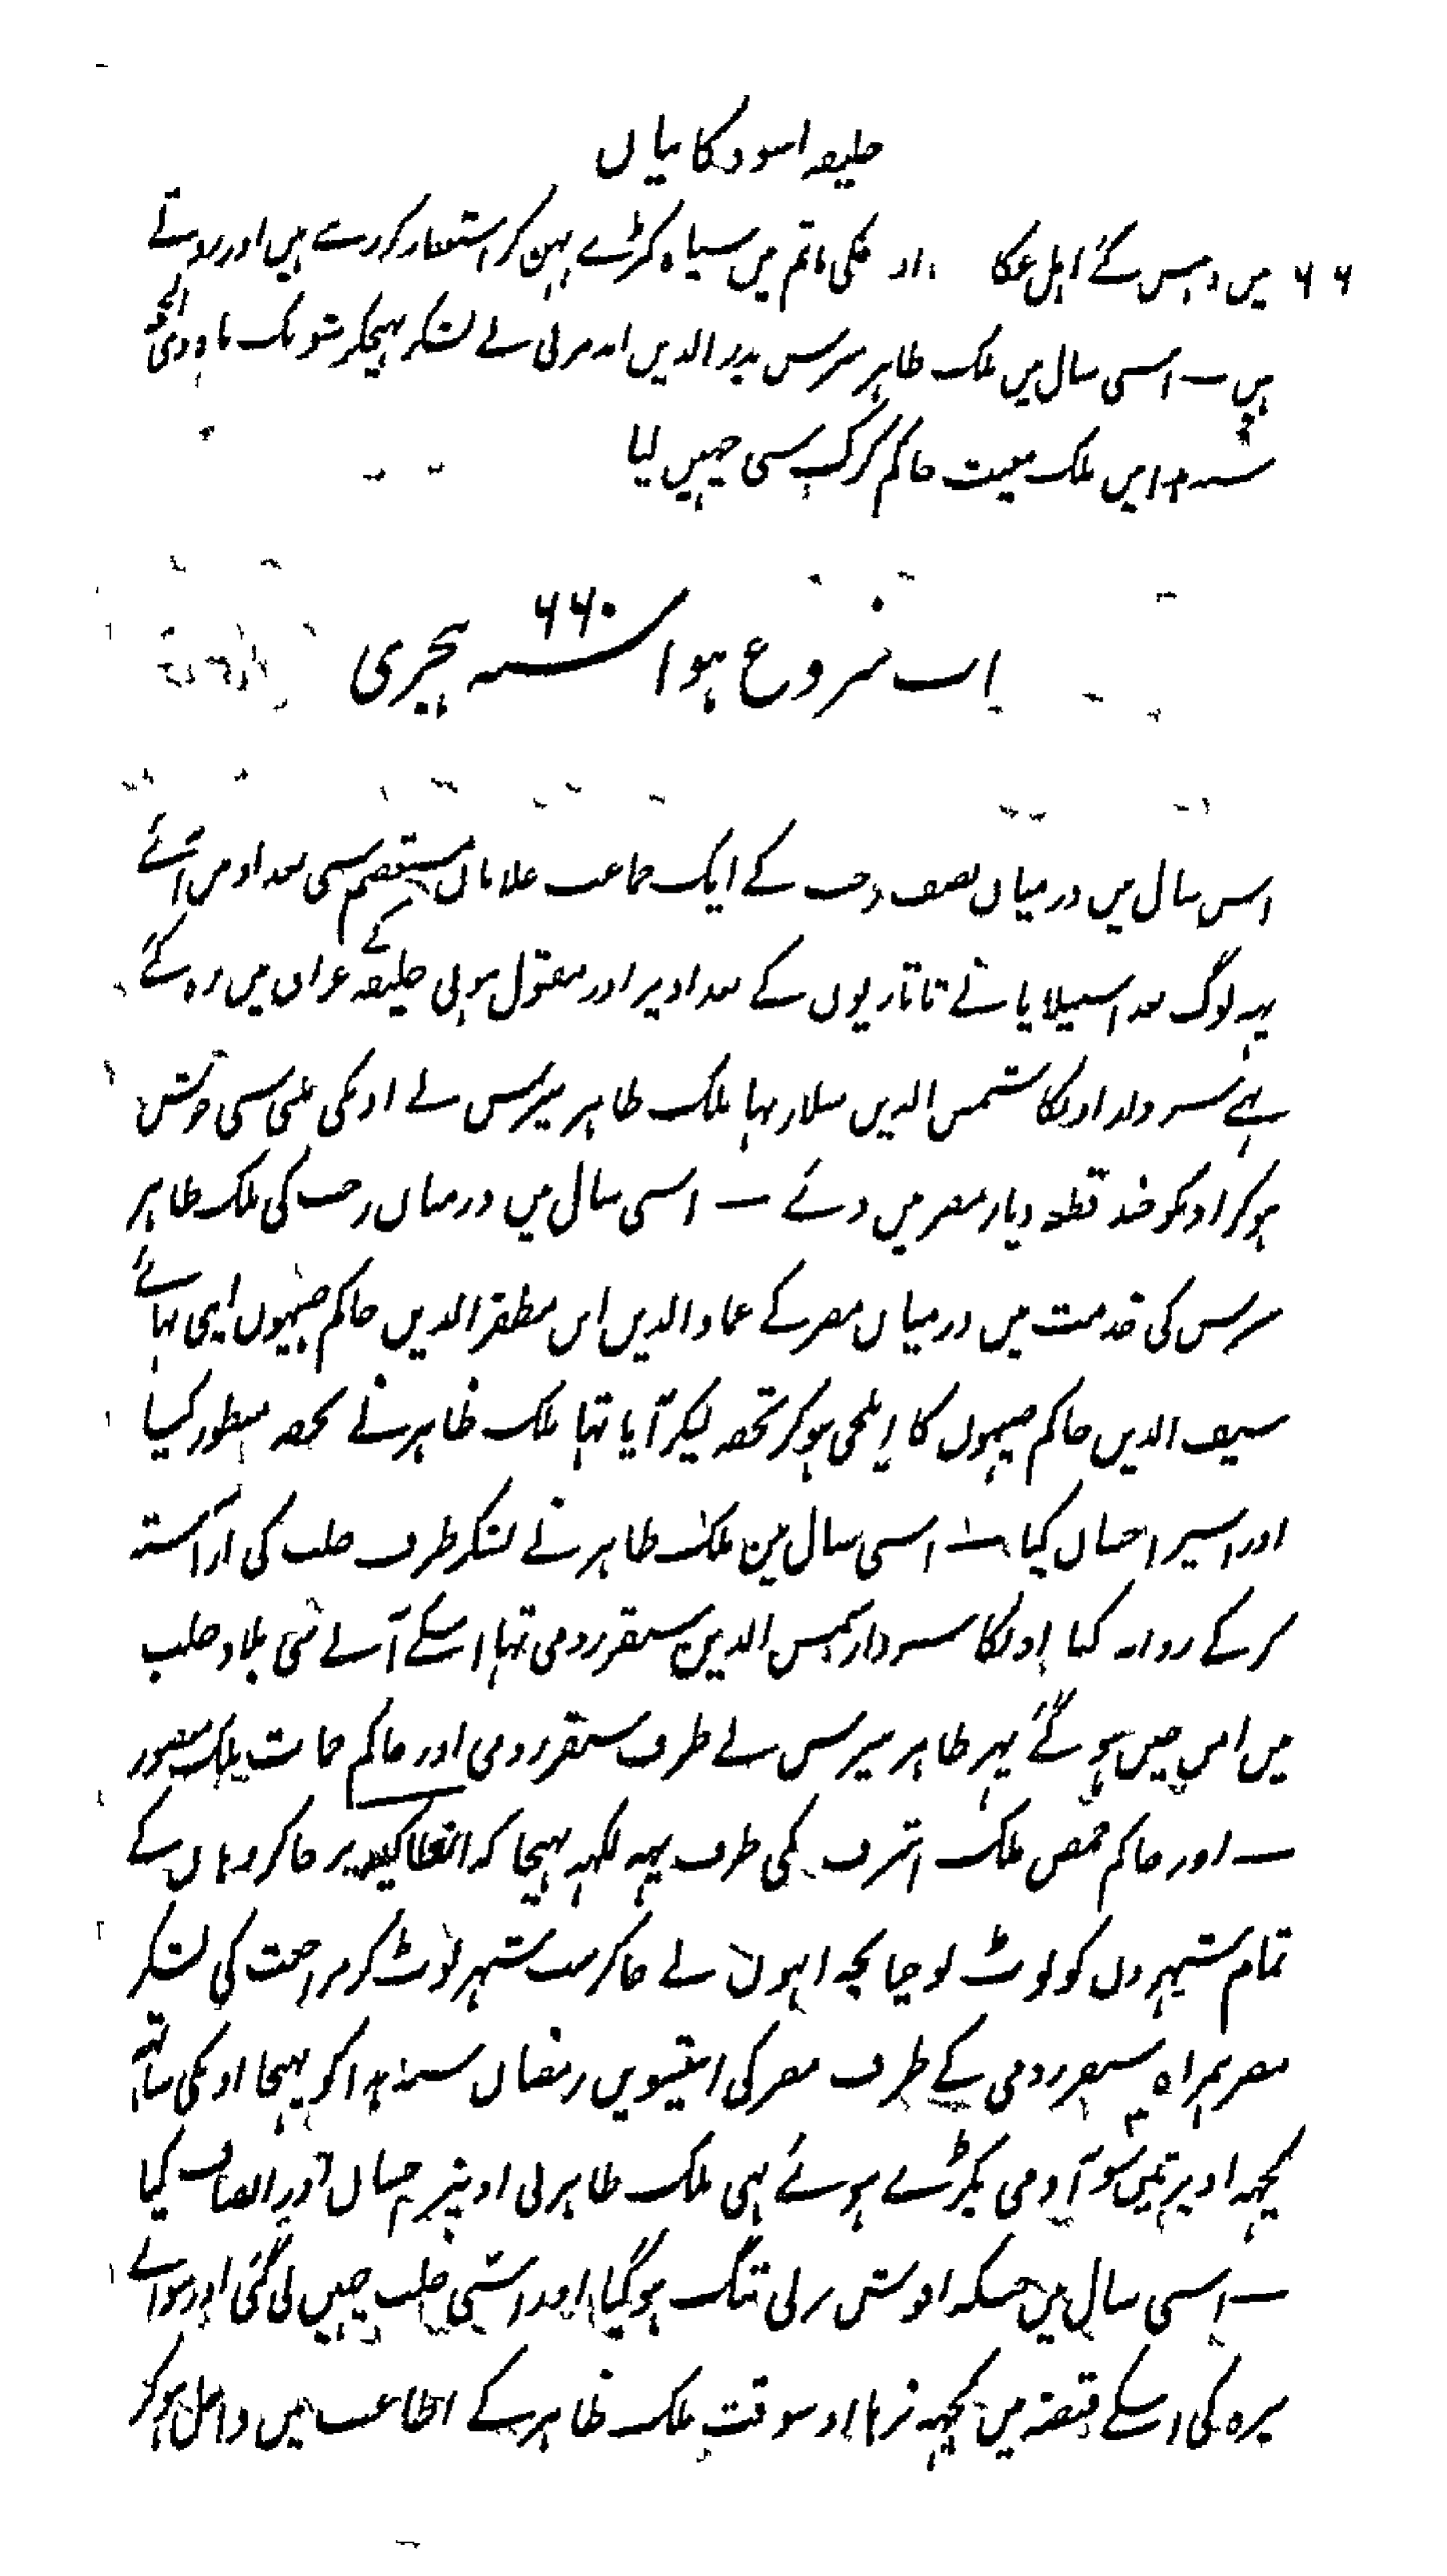 خلیفہ اسود کا بیان
۶۶ میں دہیس گئے اہل عکا اونکی ماتم میں سیاہ کپڑے پہن کر استغفار کر رہے ہیں اور روتے
ہیں ـ اسی سال میں ملک ظاہر بیبرس بدر الدین نے لشکر بہیجکر شوبک ماہ ذی الحجہ
سنہ میں ملک مغیث حاکم کرک سی چہین لیا
اب شروع ہوا سنہ ۶۶۰ ہجری
اس سال میں درمیان نصف رجب کے ایک جماعت غلامان مستعصم کے سی بغداد میں آئے
یہہ لوگ بعد استیلا پانے تاتاریوں کے بغداد پر اور مقتول ہونی خلیفہ عراق میں رہ گئے
تہے سردار اونکا شمس الدین سلار تہا ملک ظاہر بیبرس نے اونکی ملنی سی خوش
ہو کر اونکو چند قطعہ دیار مصر میں دئے ـ اسی سال میں درمیان رجب کی ملک ظاہر
بیبرس کی خدمت میں درمیان مصر کے عماد الدین ابن مظفر الدین حاکم صہیوں اپنی بہائے
سیف الدین حاکم صہیوں کا ایلچی ہو کر تحفہ لیکر آیا تہا ملک ظاہر نے تحفہ منظور کیا
اور اسپر احسان کیا ـ اسی سال میں ملک ظاہر نے لشکر طرف حلب کی آراستہ
کر کے روانہ کیا اونکا سردار شمس الدین سنقر رومی تہا اسکے آنے سی بلاد حلب
میں امن چین ہو گئے پہر ظاہر بیبرس نے طرف سنقر رومی اور حاکم حمات ملک منصور
ـ اور حاکم حمص ملک اشرف کی طرف یہہ لکہہ بہیجا کہ انطاکیہ پر جا کر وہاں کے
تمام شہروں کو لوٹ لو چنانچہ انہوں نے جا کر سب شہر لوٹ کر مراجعت کی لشکر
مصر ہمراہ سنقر رومی کے طرف مصر کی انتیسویں رمضان سنہ ہذا کو پہنچا اونکی ساتہہ
کچہہ اوپر تین سو آدمی پکڑے ہوئے تہی ملک ظاہر نی اونپر احسان اور انصاف کیا
ـ اسی سال میں جبکہ اقوش برلی تنگ ہو گیا اور اسنی حلب چہین لی گئی اور سوائے
بیرہ کی اسکے قبضہ میں کچہہ نرہا اوسوقت ملک ظاہر کے اطاعت میں داخل ہو کر